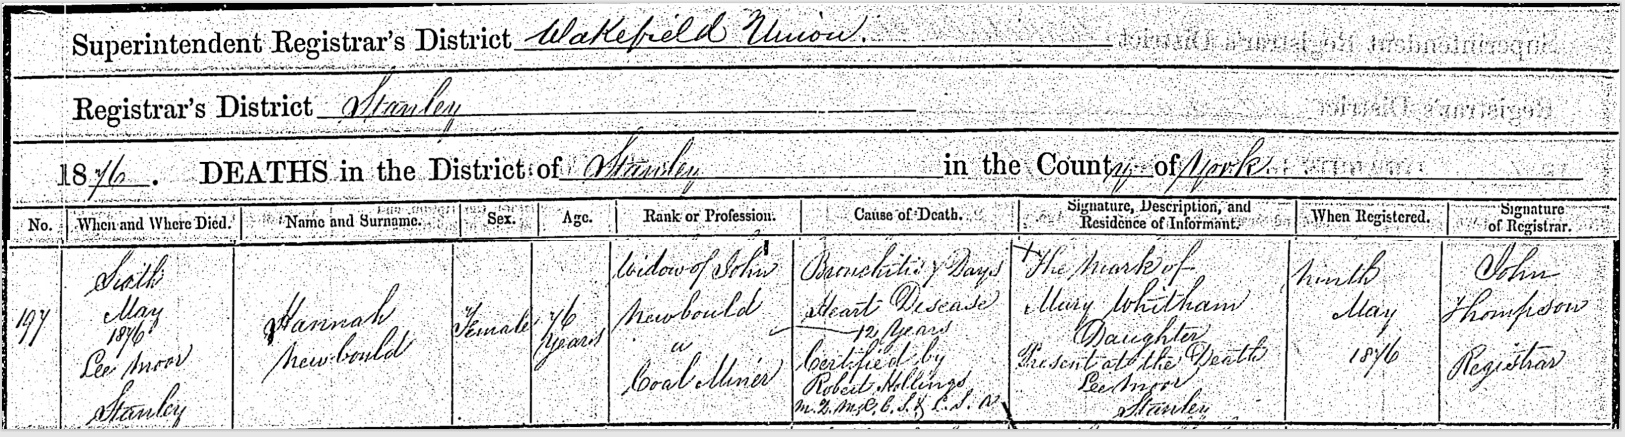 Superintendent Registrar's District Wakefield Union.
Registrar's District Stanley
1876. DEATHS in the District of Stanley in the County of York.
No. When and Where Died. Name and Surname. Sex. Age. Rank or Profession. Cause of Death. Signature, Description, and Residence of Informant. When Registered. Signature of Registrar.
197
Sixth
May
1876
Lee Moor
Stanley
Hannah
Newbould
Female
76
Years
Widow of John
Newbould
a
Coal Miner
Bronchitis 7 Days
Heart Disease
12 Years
Certified by
Robert Hollings
X The Mark of
Mary Whitham
Daughter
Present at the Death
Lee Moor
Stanley
Ninth
May
1876
John
Thompson
Registrar